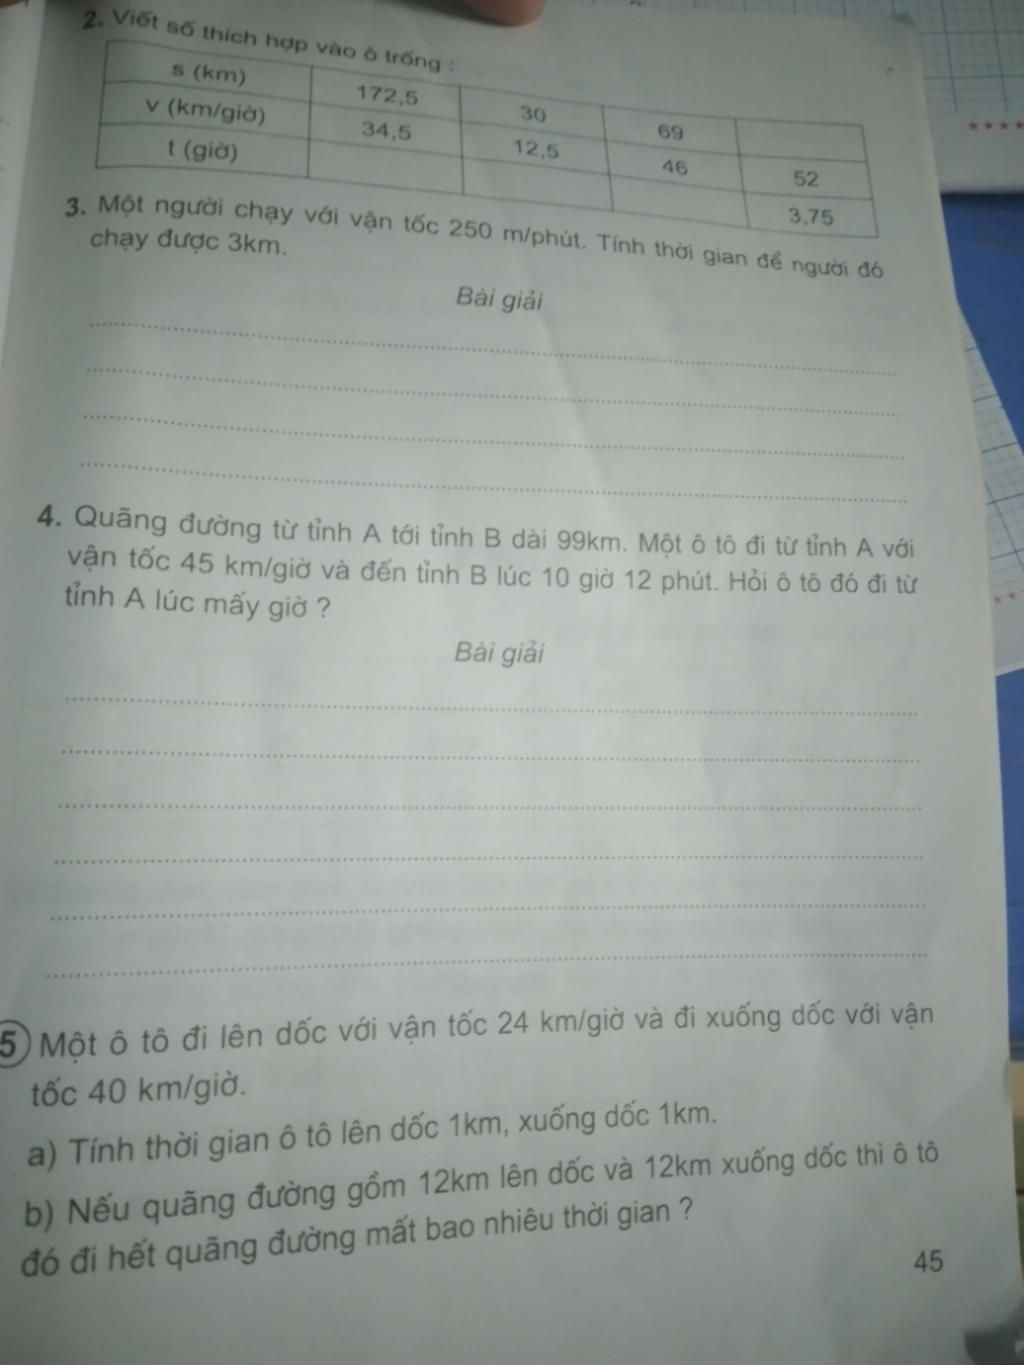 2. Viết số thích hợp vào ô trống :
s (km) 172,5 30 69
v (km/giờ) 34,5 12,5 46 52
t (giờ) 3,75
3. Một người chạy với vận tốc 250 m/phút. Tính thời gian để người đó
chạy được 3km.
Bài giải
4. Quãng đường từ tỉnh A tới tỉnh B dài 99km. Một ô tô đi từ tỉnh A với
vận tốc 45 km/giờ và đến tỉnh B lúc 10 giờ 12 phút. Hỏi ô tô đó đi từ
tỉnh A lúc mấy giờ ?
Bài giải
5 Một ô tô đi lên dốc với vận tốc 24 km/giờ và đi xuống dốc với vận
tốc 40 km/giờ.
a) Tính thời gian ô tô lên dốc 1km, xuống dốc 1km.
b) Nếu quãng đường gồm 12km lên dốc và 12km xuống dốc thì ô tô
đó đi hết quãng đường mất bao nhiêu thời gian ?
45